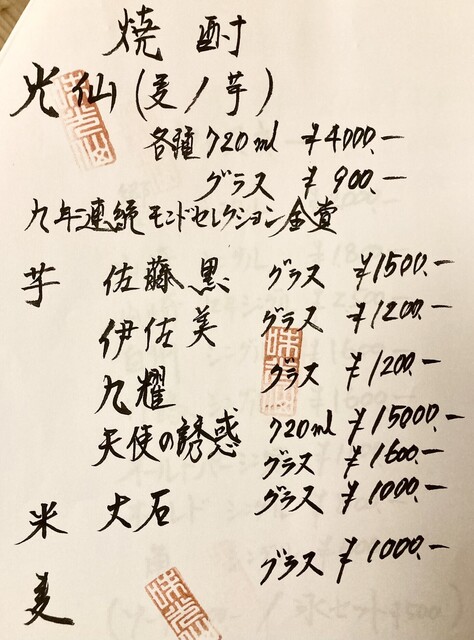 焼酎
光仙(麦/芋)
各種 720ml ¥4000.-
グラス ¥900.-
九年連続モンドセレクション金賞
芋 佐藤黒 グラス ¥1500.-
伊佐美 グラス ¥1200.-
九耀 グラス ¥1200.-
天使の誘惑 720ml ¥15000.-
グラス ¥1600.-
米 大石 グラス ¥1000.-
麦 グラス ¥1000.-